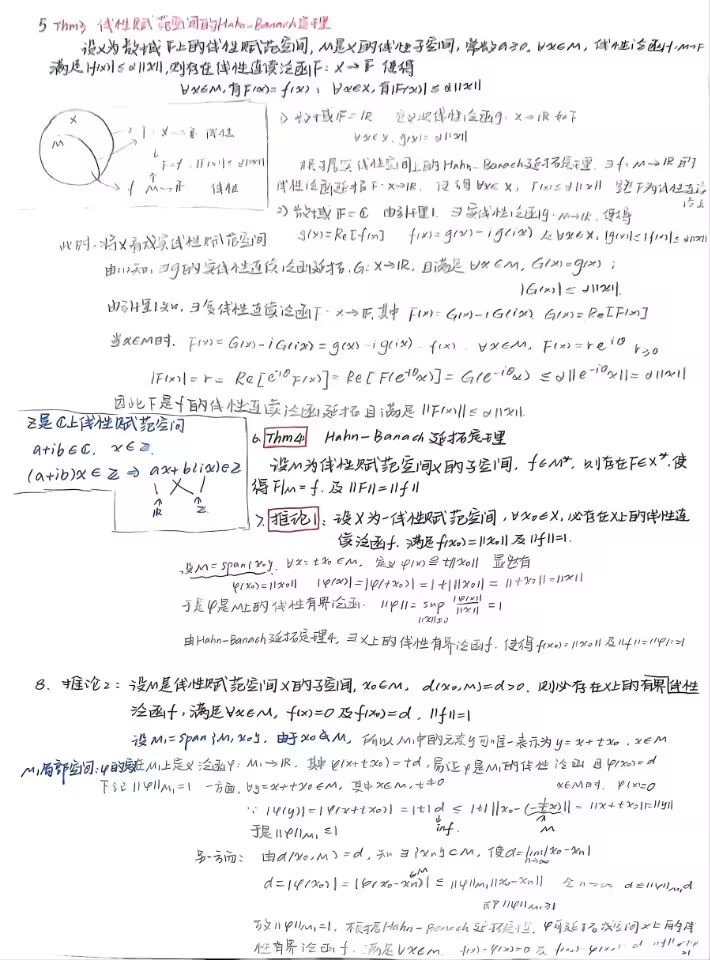 5 Thm3 线性赋范空间的Hahn-Banach定理
设X为数域F上的线性赋范空间, M是X的线性子空间, 常数α≥0. ∀x∈M, 线性泛函f: M→F
满足|f(x)|≤α||x||, 则存在线性连续泛函F: X→F 使得
∀x∈M, 有F(x)=f(x); ∀x∈X, 有|F(x)|≤α||x||
X
M
线性
f M→F 线性
1) 数域F=IR 定义泛函g: X→IR如下
∀x∈X, g(x)=α||x||
根据实线性空间上的Hahn-Banach延拓定理, ∃f: M→IR的
线性泛函延拓F: X→IR, 使得∀x∈X, F(x)≤α||x|| 显然F为线性连续
泛函
2) 数域F=C 由引理1, ∃实线性泛函g: M→IR, 使得
g(x)=Re[f(x)] f(x)=g(x)-ig(ix) 及∀x∈X, |g(x)|≤|f(x)|≤α||x||
此时, 将X看成实线性赋范空间
由(1)知, ∃g的实线性连续泛函延拓, G: X→IR, 且满足 ∀x∈M, G(x)=g(x);
|G(x)|≤α||x||.
由引理1知, ∃复线性连续泛函F: X→F, 其中 F(x)=G(x)-iG(ix) G(x)=Re[F(x)]
当x∈M时, F(x)=G(x)-iG(ix)=g(x)-ig(ix)=f(x). ∀x∈M, F(x)=re^{iθ} r≥0
|F(x)|=r=Re[e^{-iθ}F(x)]=Re[F(e^{-iθ}x)]=G(e^{-iθ}x)≤α||e^{-iθ}x||=α||x||
因此F是f的线性连续泛函延拓且满足||F(x)||≤α||x||.
Z是C上线性赋范空间
a+ib∈C, x∈Z.
(a+ib)x∈Z ⇒ ax+b(ix)∈Z
IR Z
6. Thm4 Hahn-Banach 延拓定理
设M为线性赋范空间X的子空间, f∈M*, 则存在F∈X*, 使
得F|M=f. 及||F||=||f||
7. 推论1: 设X为一线性赋范空间, ∀x₀∈X, 必存在X上的线性连
续泛函f, 满足f(x₀)=||x₀||及||f||=1.
设M=span{x₀}, ∀x=tx₀∈M, 定义φ(x)≜t||x₀|| 显然有
φ(x₀)=||x₀|| |φ(x)|=|φ(tx₀)|=|t|||x₀||=||tx₀||=||x||
于是φ是M上的线性有界泛函. ||φ||=sup |φ(x)|/||x||=1
由Hahn-Banach延拓定理4, ∃X上的线性有界泛函f, 使得f(x₀)=||x₀||及||f||=||φ||=1
8. 推论2: 设M是线性赋范空间X的子空间, x₀∈M, d(x₀,M)=d>0, 则必存在X上的有界线性
泛函f, 满足∀x∈M, f(x)=0及f(x₀)=d, ||f||=1
设M₁=span{M, x₀}, 由于x₀∉M, 所以M₁中的元素y可唯一表示为y=x+tx₀, x∈M
M₁局部空间: 在M₁上定义泛函φ: M₁→IR, 其中φ(x+tx₀)=td, 易证φ是M₁的线性泛函且φ(x₀)=d
下证||φ||M₁=1 一方面, ∀y=x+tx₀∈M, 其中x∈M, t≠0 x∈M时, φ(x)=0
∵ |φ(y)|=|φ(x+tx₀)|=|t|d≤|t|||x₀-(-1/t x)||=||x+tx₀||=||y||
inf. M
于是||φ||M₁≤1
另一方面: 由d(x₀,M)=d, 知∃{xn}⊂M, 使d=lim n→∞ ||x₀-xn||
d=|φ(x₀)|=|φ(x₀-xn)|≤||φ||M₁||x₀-xn|| 令n→∞ d≤||φ||M₁d
∴||φ||M₁≥1
故||φ||M₁=1, 根据Hahn-Banach延拓定理, φ可延拓成空间X上的线
性有界泛函f. 满足∀x∈M. f(x)=φ(x)=0及f(x₀)=φ(x₀)=d